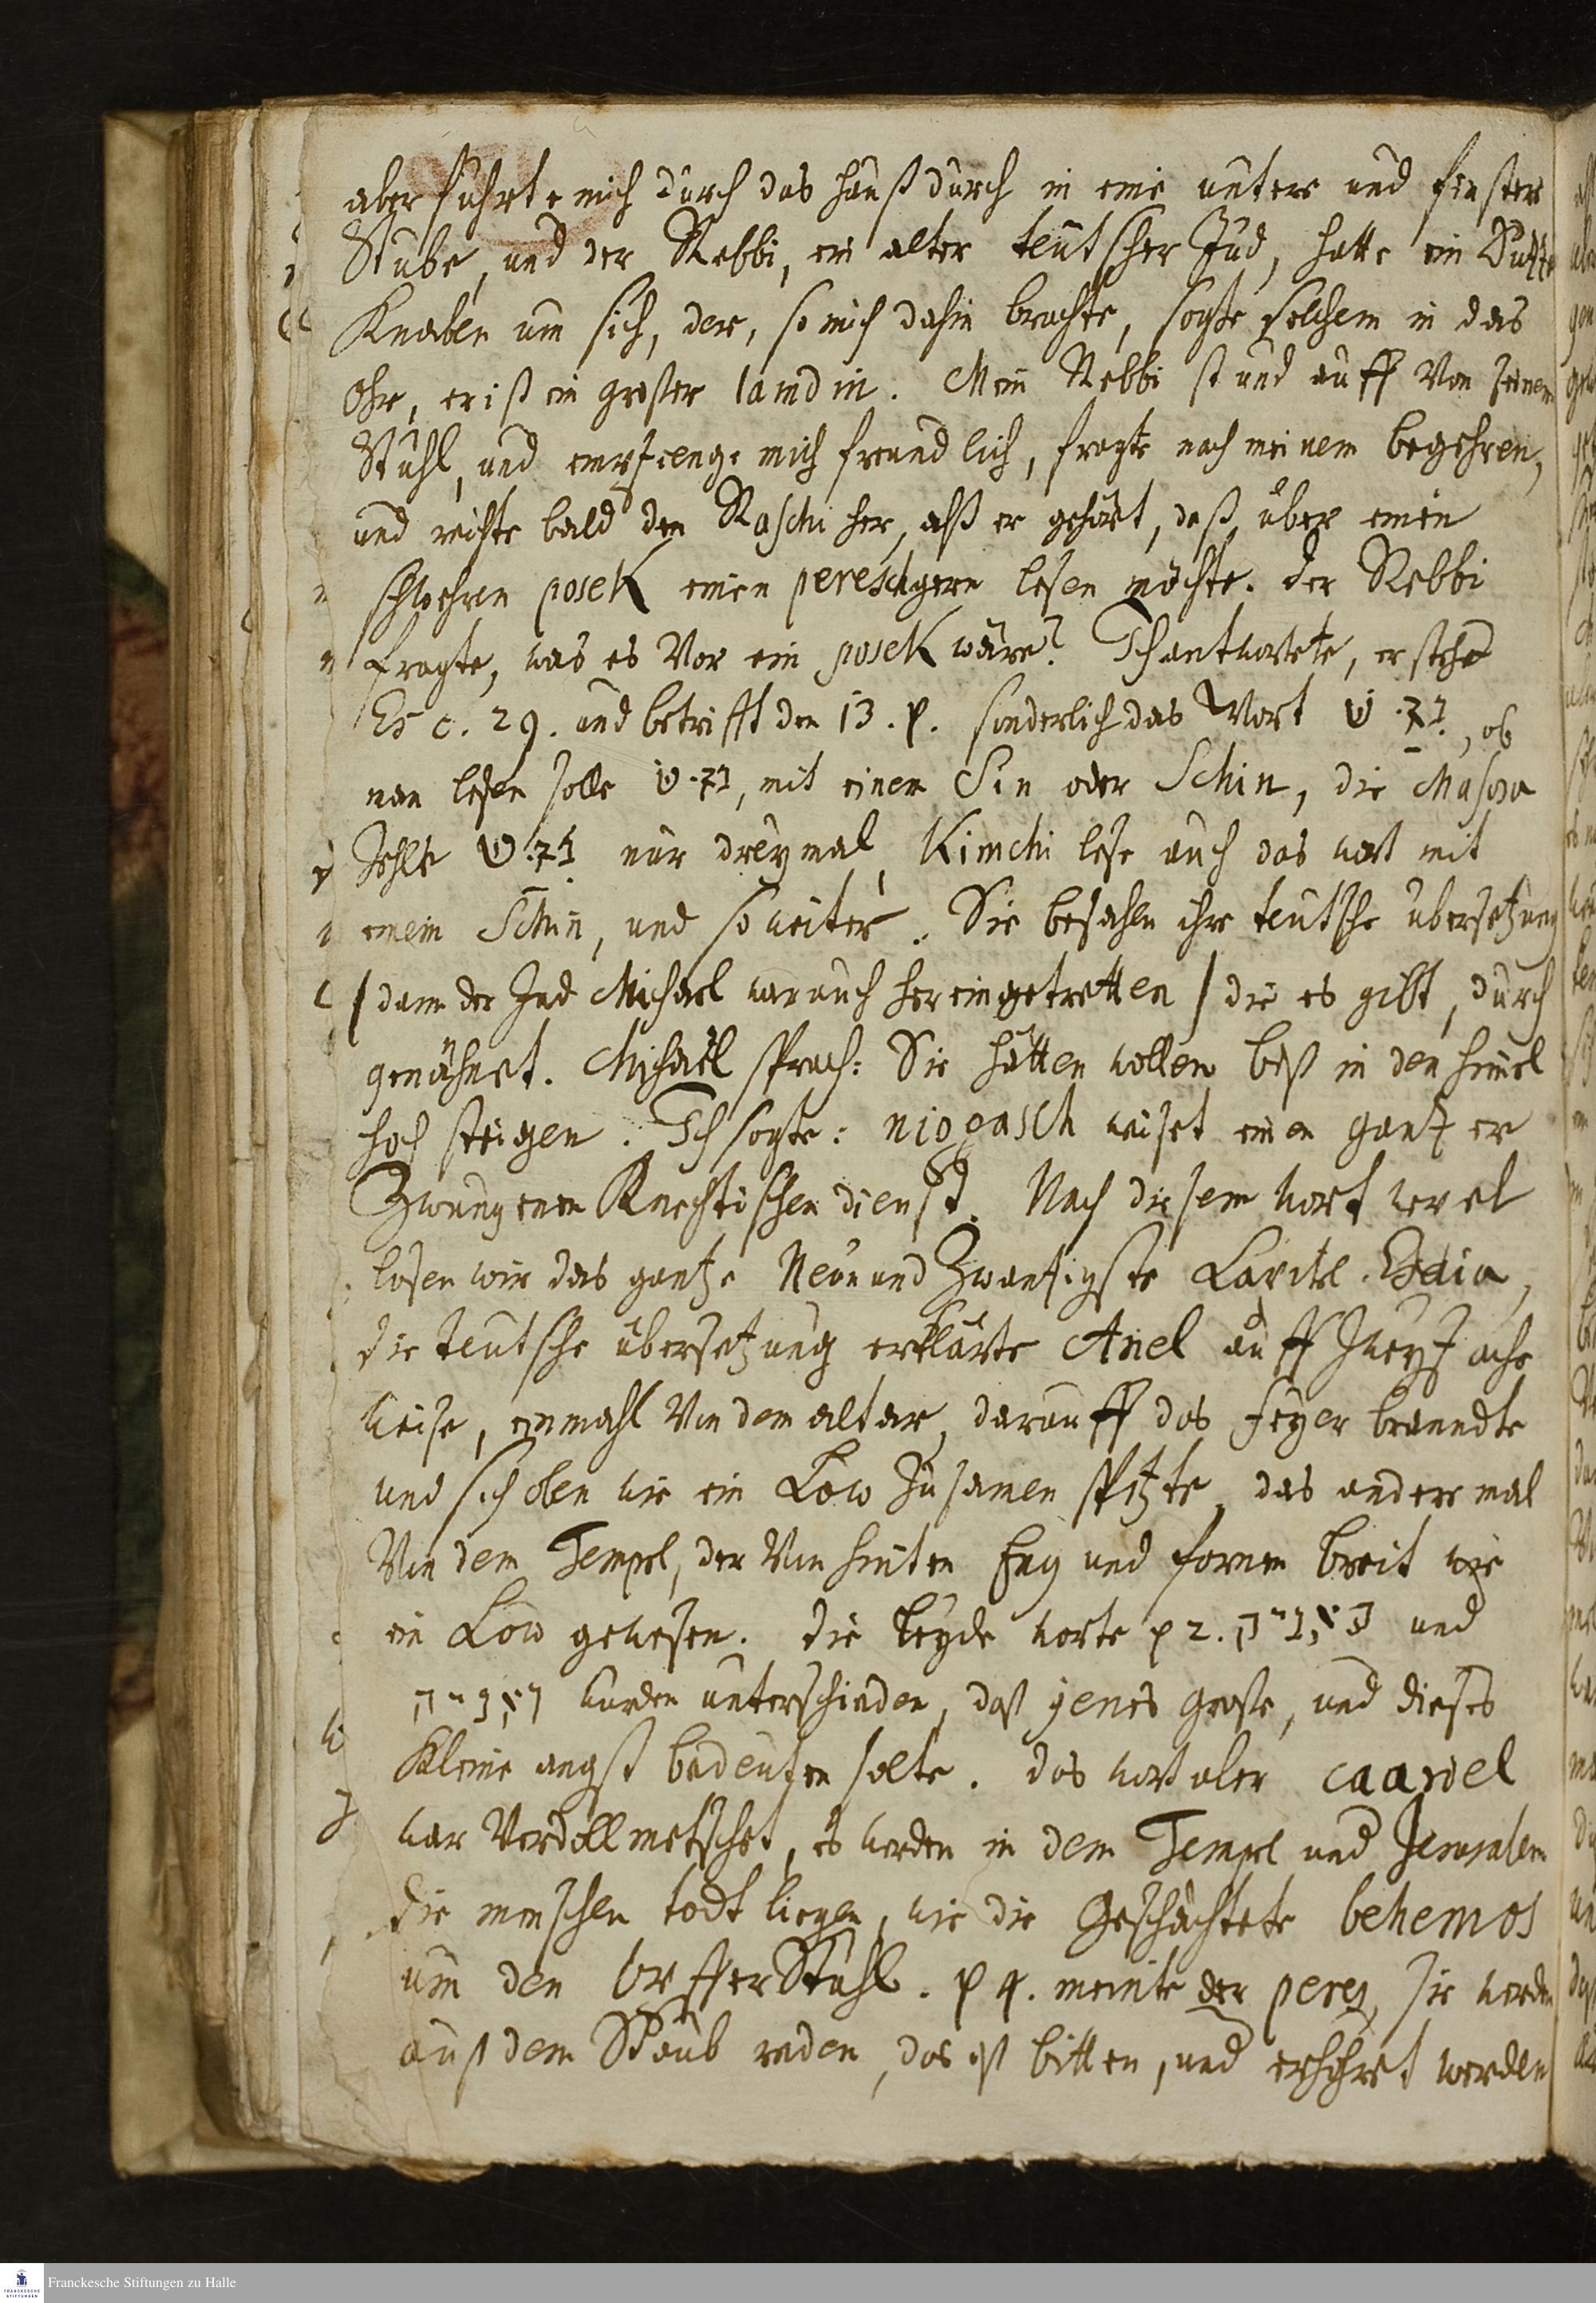 aber führte mich durch das hauß durch in eine untere und finster
Stube, und der Rebbi, ein alter teutscher Jud, hatte ein Dutz
Knaben um sich, der, so mich dahin brachte, sagte solchem in das
Ohr, er ist ein groser lamdin. Mein Rebbi stund auff von seinem
Stuhl, und empfienge mich freundlich, fragte nach meinem begehren,
und reichte bald den Raschi her, alß er gehört, daß über einen
schwehren posek einen peresch gern lesen möchte. der Rebbi
fragte, was es vor ein posek wäre? Ich antwortete, er stehe
Es c. 29. und betrifft den 13. p. sonderlich das Wort נִגַּשׁ, ob
man lesen solle נִגַּשׂ, mit einem Sin oder Schin, die Masora
zehlte נִגַּשׂ nur dreymal, Kimchi lese auch das wort mit
einem Schin, und so weiter. Sie besahen ihre teutsche übersetzung
/ dann der Jud Michael war auch hereingetretten / die es gibt, durch
genähnet. Michaël sprach: Sie hätten wollen biß in den himel
hoch steigen. Ich sagte: niggasch weiset einen gantz er
Zwungenen Knechtischen dienst. Nach diesem wort
lasen wir das gantze Neun und Zwantzigste Capitel Esaia,
die teutsche übersetzung erklärte Ariel auff zweyfache
weise, einmahl von dem altar, darauff das feyer brandte
und sich oben wie ein Löw zusamen spitzte, das ander mal
von dem Tempel, der von hinten Eng und fornen breit wie
ein Löw gewesen. die beyde worte p 2. תאניה und
ואניה wurden unterschieden, daß jenes grose, und dieses
Kleine angst bedeuten solte. das wort aber caariel
war verdollmetschet, es werden in dem Tempel und Jerusalem
die menschen todt liegen, wie die Geschächtete behemos
um den OpfferStuhl. p 4. meinte der peres, sie werden
auß dem Staub reden, das ist bitten, und erhöret werden
Franckesche Stiftungen zu Halle